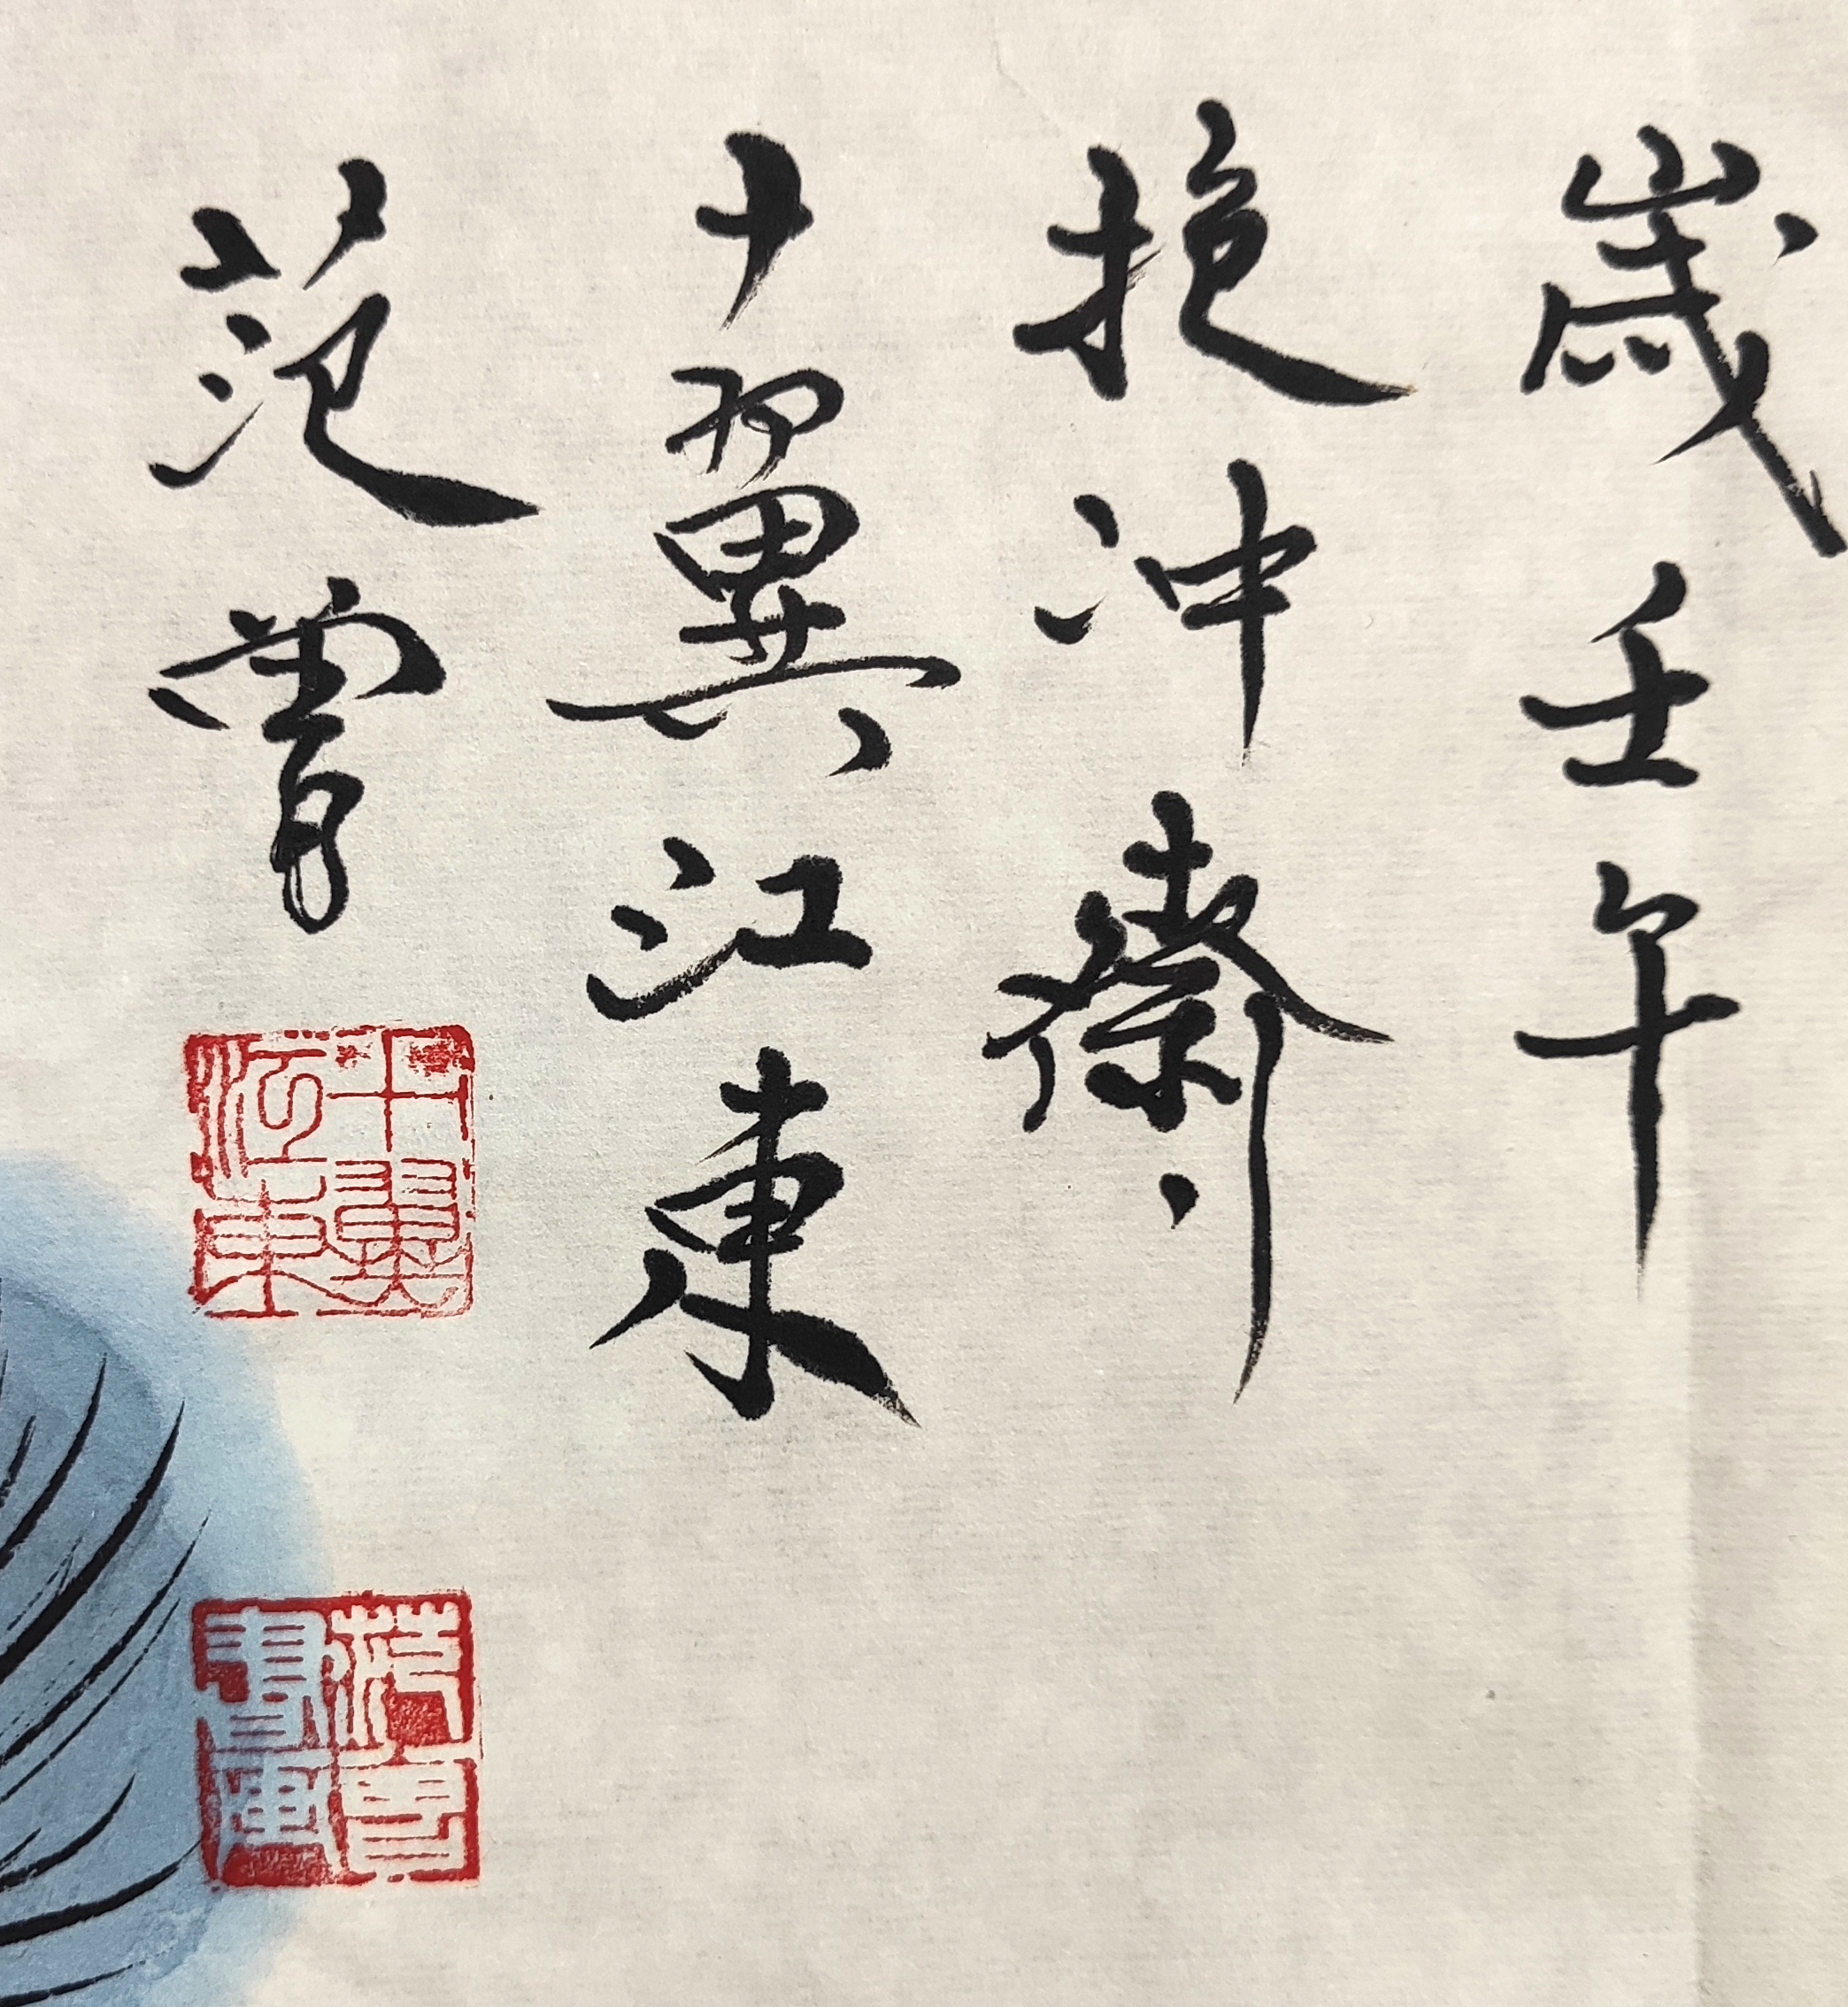 歲壬午
抱冲齋
十翼江東
范曾
十翼江東
范曾書画